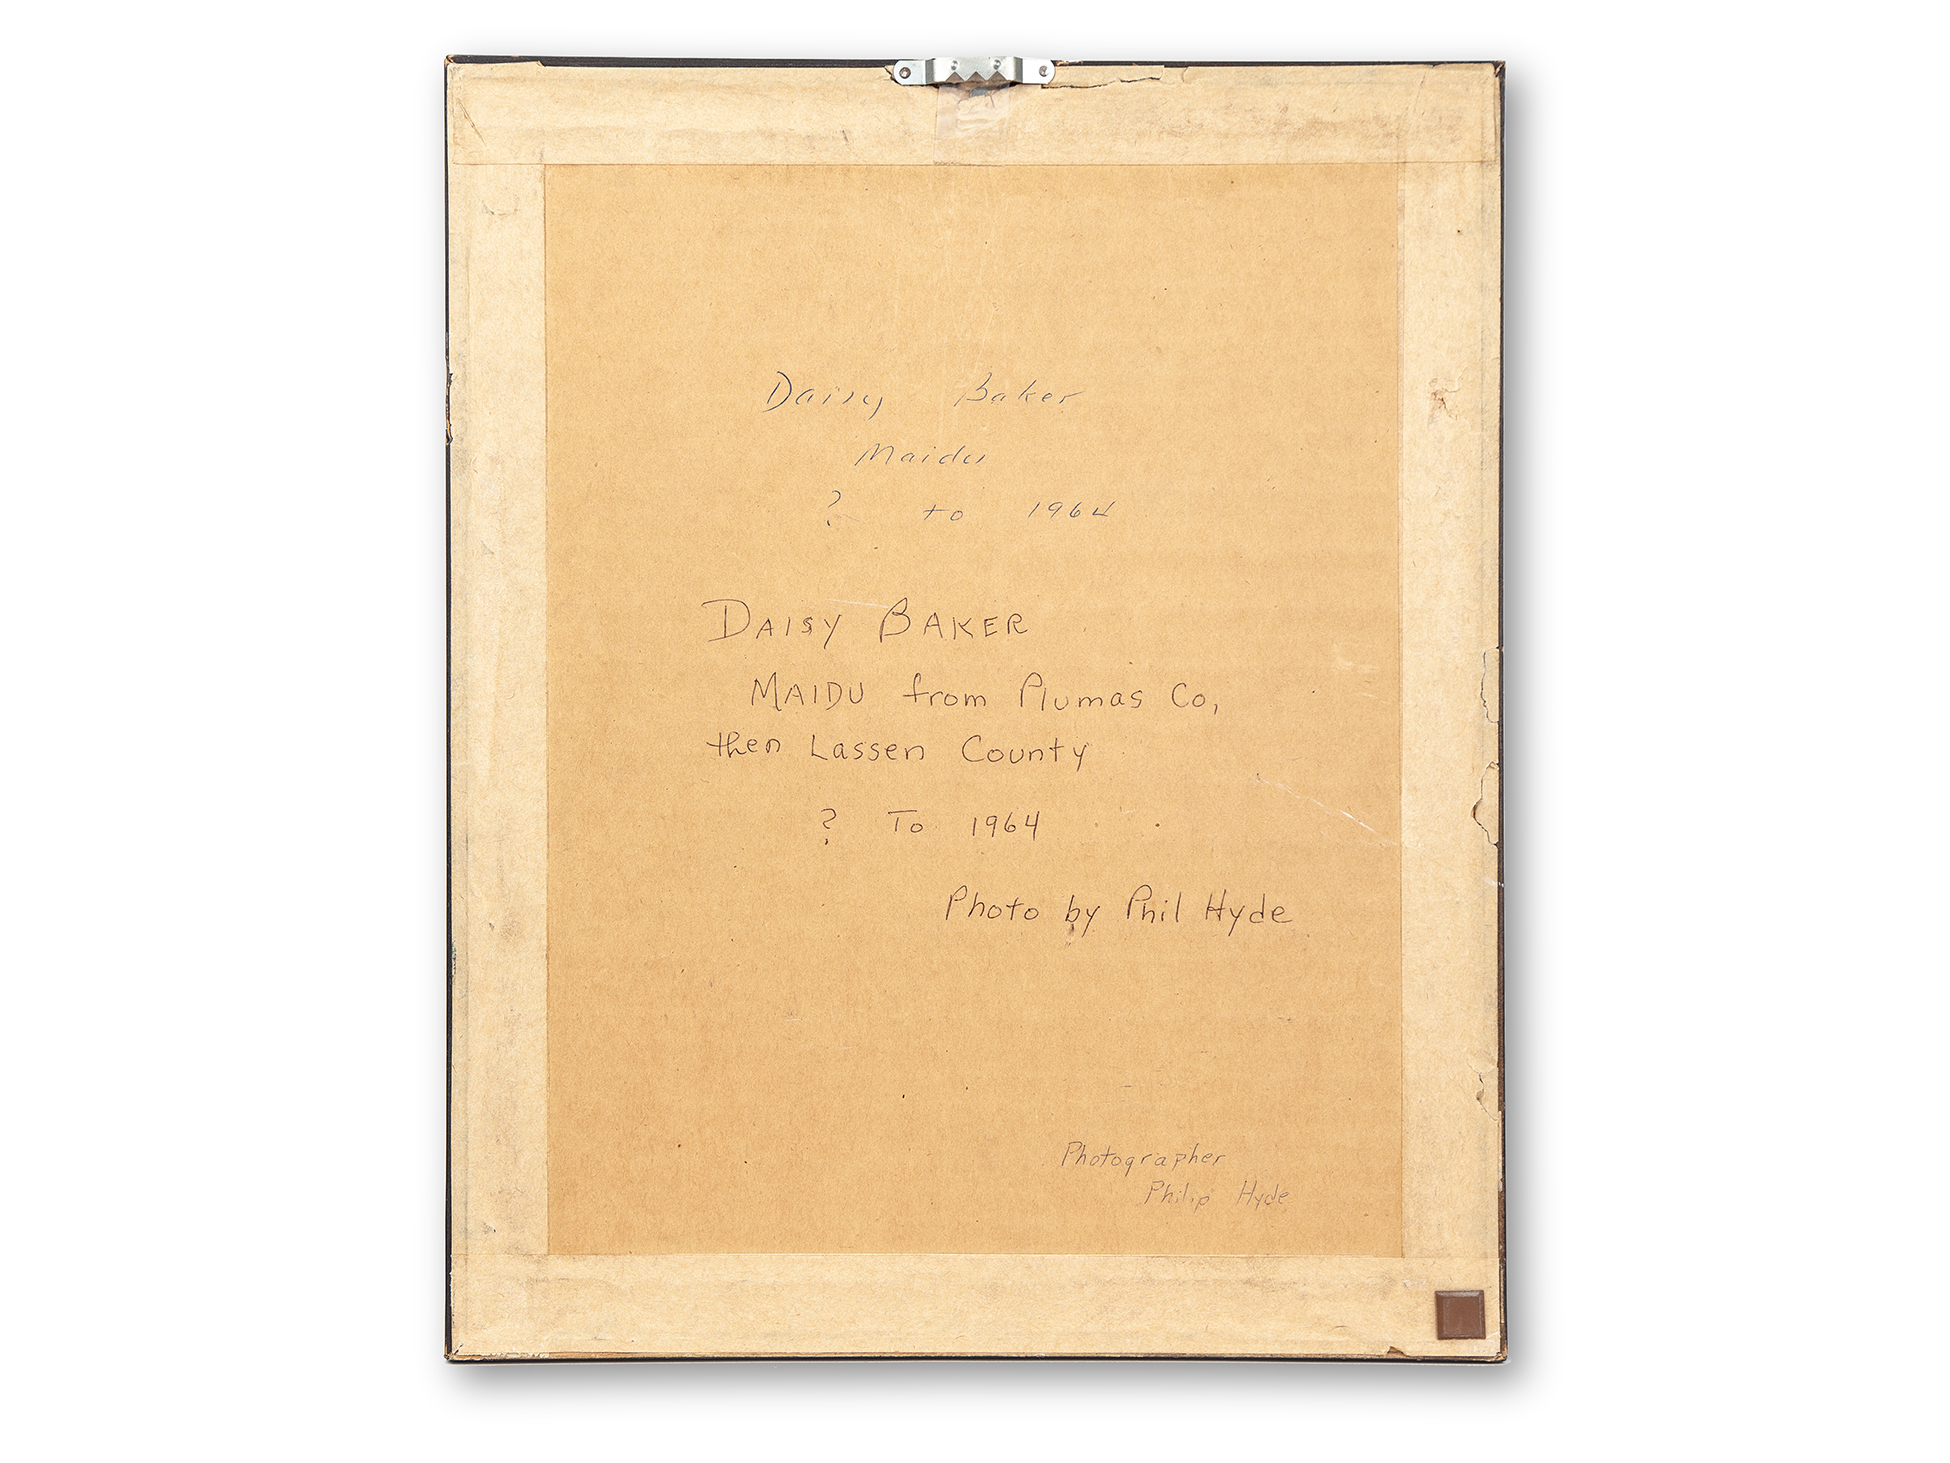 Daisy Baker
Maidu
? to 1964
DAISY BAKER
MAIDU from Plumas Co,
then Lassen County
? To 1964
Photo by Phil Hyde
Photographer
Philip Hyde